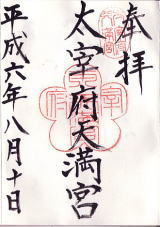 奉拝
太宰府天満宮
平成六年八月十日